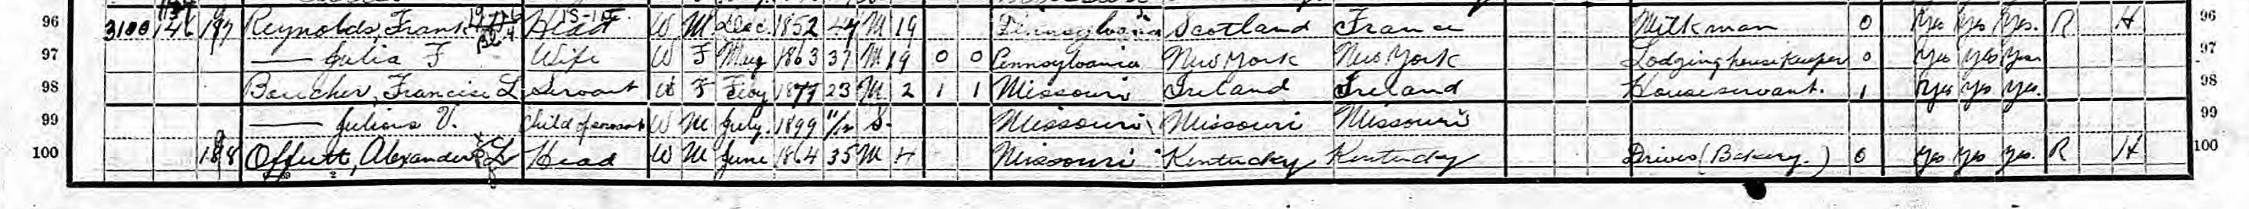 96 3100 146 197 Reynolds, Frank Head W M Dec. 1852 47 M 19 Pennsylvania Scotland France Milkman 0 Yes Yes Yes. R H 96
97 — Julia F Wife W F May 1863 37 M 19 0 0 Pennsylvania New York New York Lodging house Keeper 0 Yes Yes Yes. 97
98 Boucher, Francise L Servant W F Feby 1877 23 M 2 1 1 Missouri Ireland Ireland House servant. 1 Yes Yes Yes. 98
99 — Julious V. Child of servant W M July. 1899 11/12 S. Missouri Missouri Missouri 99
100 198 Offutt, Alexander L Head W M June 1864 35 M 4 Missouri Kentucky Kentucky Driver (Bakery.) 0 Yes Yes Yes. R H 100